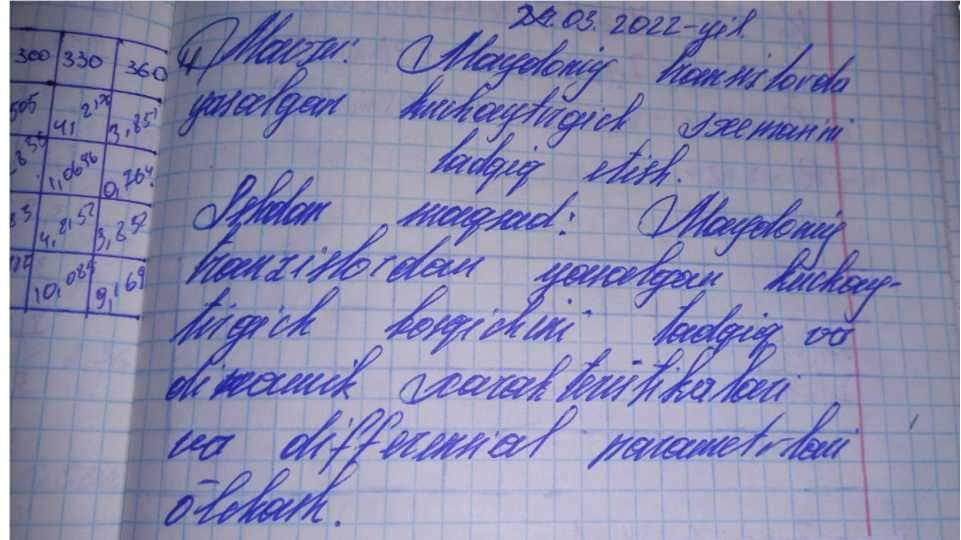 24.03.2022-yil.
300 330 360
505 4,275 3,851
,836 1,0696 0,764
83 4,252 3,852
10,085 9,169
4) Mavzu: Maydoniy tranzistorda
yasalgan kuchaytirgich sxemasini
tadqiq etish.
Ishdan maqsad: Maydoniy
tranzistordan yasalgan kuchay-
tirgich bosqichini tadqiq va
dinamik xarakteristikalari
va differensial parametrlari
o‘lchash.